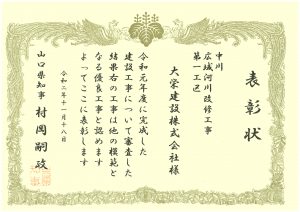 表彰状
中川
広域河川改修工事
第一工区
大栄建設株式会社様
令和元年度に完成した
建設工事について審査した
結果右の工事は他の模範と
なる優良工事と認めます
よってここに表彰します
令和二年十一月十八日
山口県知事 村岡嗣政